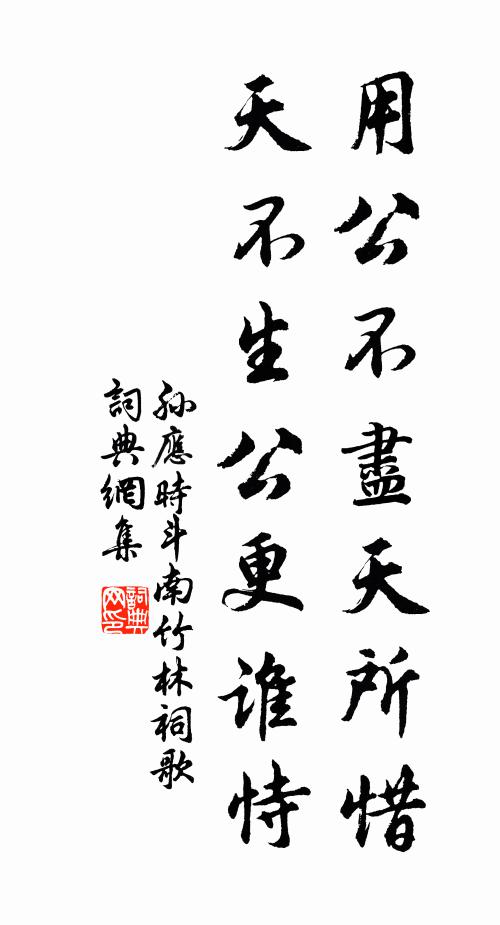 用公不盡天所惜
天不生公更誰恃
孫應時斗南竹林祠歌
詞典網集
詞典网印